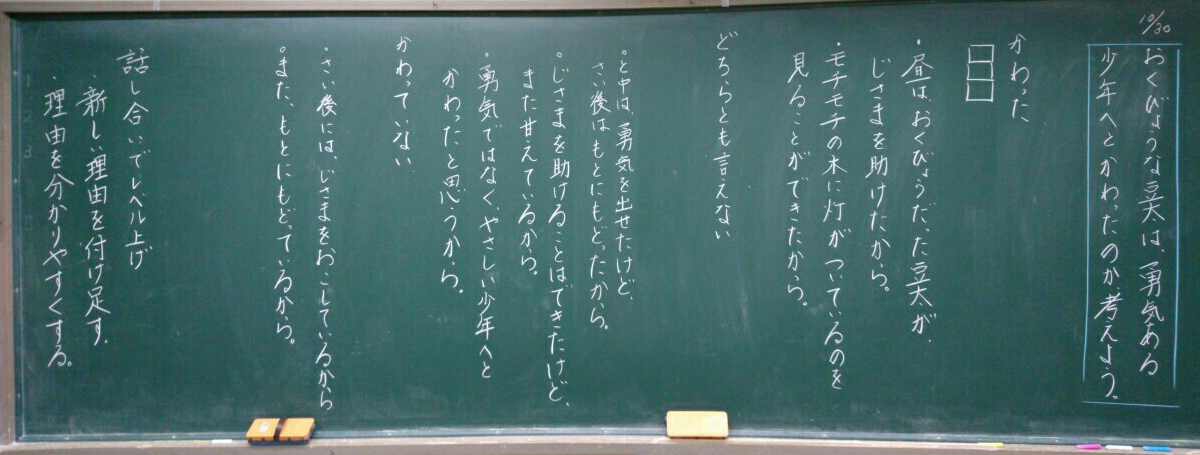 10/30
おくびょうな豆太は、勇気ある
少年へとかわったのか、考えよう。
かわった
・昼は、おくびょうだった豆太が、
じさまを助けたから。
・モチモチの木に灯がついているのを
見ることができたから。
どちらとも言えない
・と中は、勇気を出せたけど、
さい後はもとにもどったから。
・じさまを助けることはできたけど、
また甘えているから。
・勇気ではなく、やさしい少年へと
かわったと思うから。
かわっていない
・さい後には、じさまをおこしているから
・また、もとにもどっているから。
話し合いでレベル上げ
・新しい理由を付け足す。
・理由を分かりやすくする。